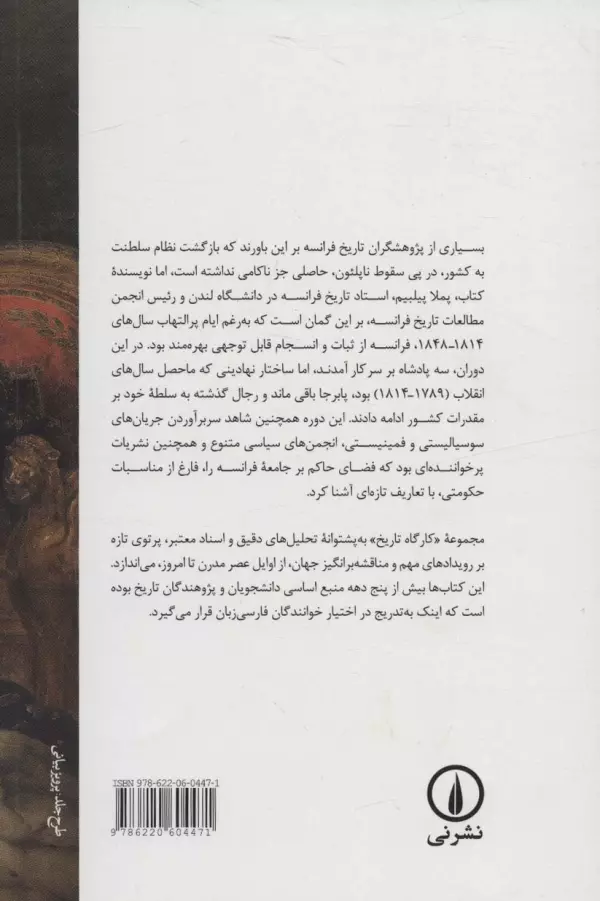 بسیاری از پژوهشگران تاریخ فرانسه بر این باورند که بازگشت نظام سلطنت
به کشور، در پی سقوط ناپلئون، حاصلی جز ناکامی نداشته است، اما نویسندهٔ
کتاب، پملا پیلبیم، استاد تاریخ فرانسه در دانشگاه لندن و رئیس انجمن
مطالعات تاریخ فرانسه، بر این گمان است که به‌رغم ایام پرالتهاب سال‌های
۱۸۱۴-۱۸۴۸، فرانسه از ثبات و انسجام قابل توجهی بهره‌مند بود. در این
دوران، سه پادشاه بر سر کار آمدند، اما ساختار نهادینی که ماحصل سال‌های
انقلاب (۱۷۸۹-۱۸۱۴) بود، پابرجا باقی ماند و رجال گذشته به سلطهٔ خود بر
مقدرات کشور ادامه دادند. این دوره همچنین شاهد سربرآوردن جریان‌های
سوسیالیستی و فمینیستی، انجمن‌های سیاسی متنوع و همچنین نشریات
پرخواننده‌ای بود که فضای حاکم بر جامعهٔ فرانسه را، فارغ از مناسبات
حکومتی، با تعاریف تازه‌ای آشنا کرد.
مجموعهٔ «کارگاه تاریخ» به‌پشتوانهٔ تحلیل‌های دقیق و اسناد معتبر، پرتوی تازه
بر رویدادهای مهم و مناقشه‌برانگیز جهان، از اوایل عصر مدرن تا امروز، می‌اندازد.
این کتاب‌ها بیش از پنج دهه منبع اساسی دانشجویان و پژوهندگان تاریخ بوده
است که اینک به‌تدریج در اختیار خوانندگان فارسی‌زبان قرار می‌گیرد.
طرح جلد: پرویز بیانی
ISBN 978-622-06-0447-1
9 786220 604471
نشرنی